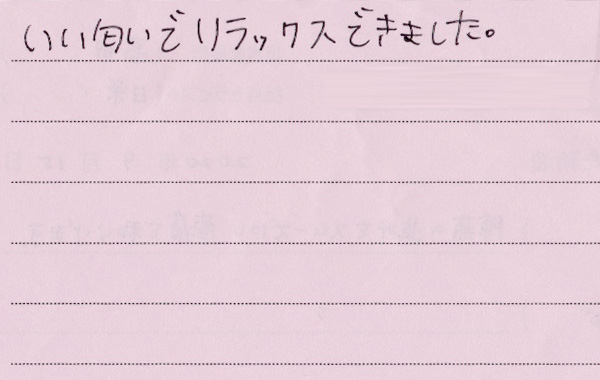 いい匂いでリラックスできました。